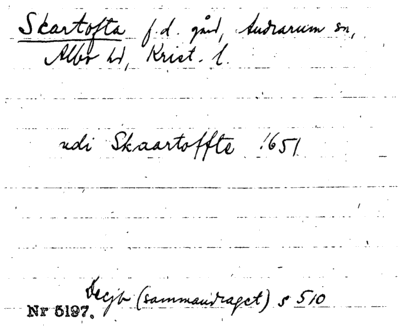 Skartofta f.d. gård, Andrarum sn,
Albo hd, Krist. l.
udi Skaartoffte 1651
Decjb (sammandraget) s 510
Nr 5197.